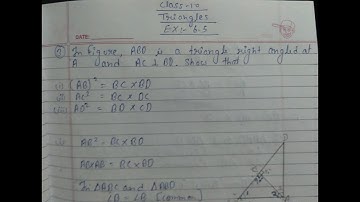 Class-10
Triangles
Ex:- 6.5
DATE:
③ In figure, ABD is a triangle right angled at
A and AC ⊥ BD. Show that
(i) (AB)² = BC × BD
(ii) AC² = BC × DC
(iii) AD² = BD × CD
AB² = BC × BD
AB×AB = BC × BD
In △ABC and △ABD
∠B = ∠B (common)